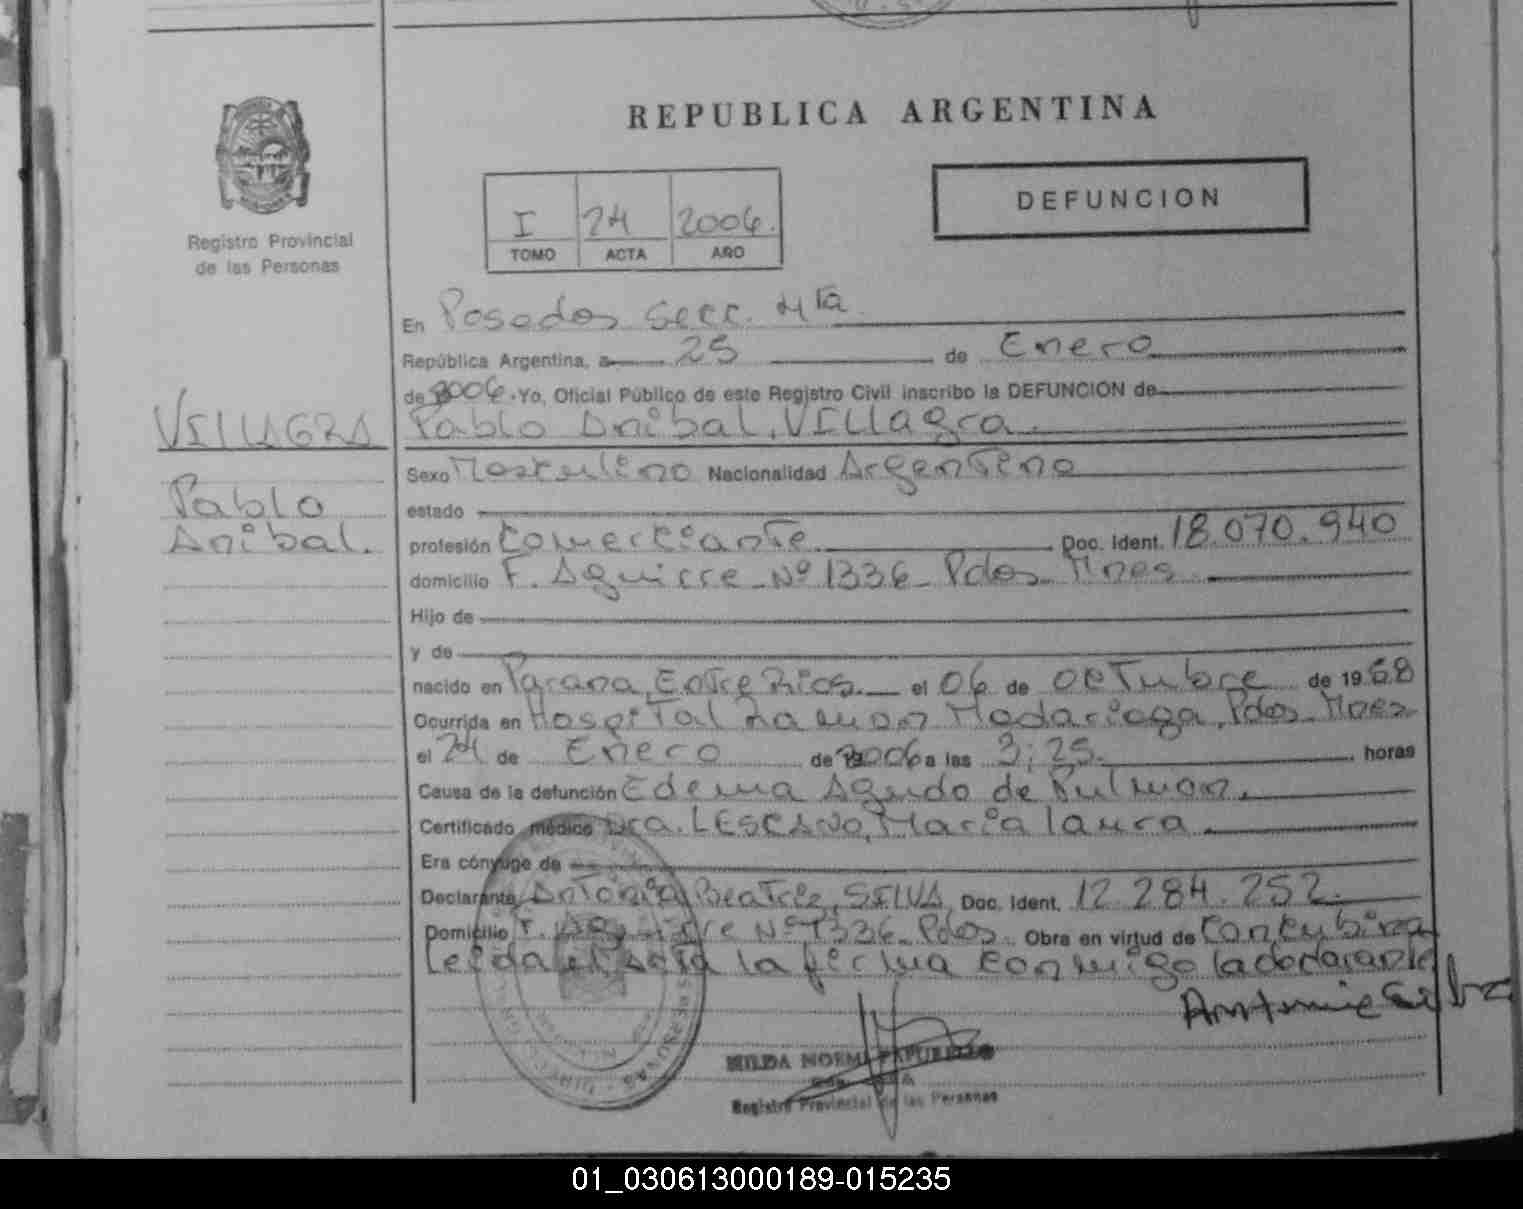 REPUBLICA ARGENTINA
Registro Provincial
de las Personas
I 24 2006.
TOMO ACTA AÑO
DEFUNCION
En Posadas Secc. 4ta
República Argentina, a 25 de Enero
de 2006. Yo, Oficial Público de este Registro Civil inscribo la DEFUNCION de
VILLAGRA
Pablo Anibal. VILLagra.
Pablo
Anibal.
Sexo Masculino Nacionalidad Argentina
estado
profesión Comerciante Doc. Ident. 18.070.940
domicilio F. Aguirre Nº 1336 Pdas Mnes
Hijo de
y de
nacido en Parana, Entre Rios. el 06 de OcTubre de 1968
Ocurrida en HospiTal Ramon Madariaga, Pdas Mnes
el 24 de Enero de 2006 a las 3:25. horas
Causa de la defunción Edema Agudo de Pulmon.
Certificado médico Dra. LESCANO, Maria Laura
Era cónyuge de
Declarante Antonia Beatriz, SILVA Doc. Ident. 12.284.252.
Domicilio F. Aguirre Nº 1336 Pdas. Obra en virtud de Concubina
Leida el acta la firma conmigo la declarante
Antonia Silva
HILDA NOEMI
Registro Provincial de las Personas
01_030613000189-015235